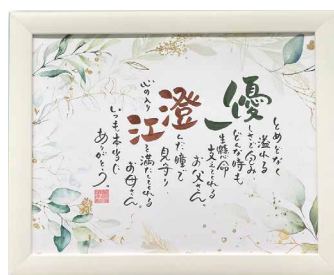 とめどなく
溢れる
優しさで包み
どんな時も
一生懸命
支えてくれる
お父さん。
澄んだ瞳で
見守り
心の入り
江を満たしてくれる
お母さん。
いつも本当に
ありがとう